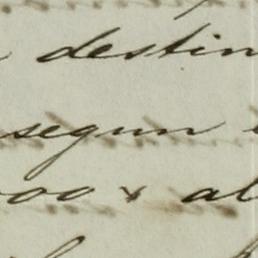 destin
segun
oo x al